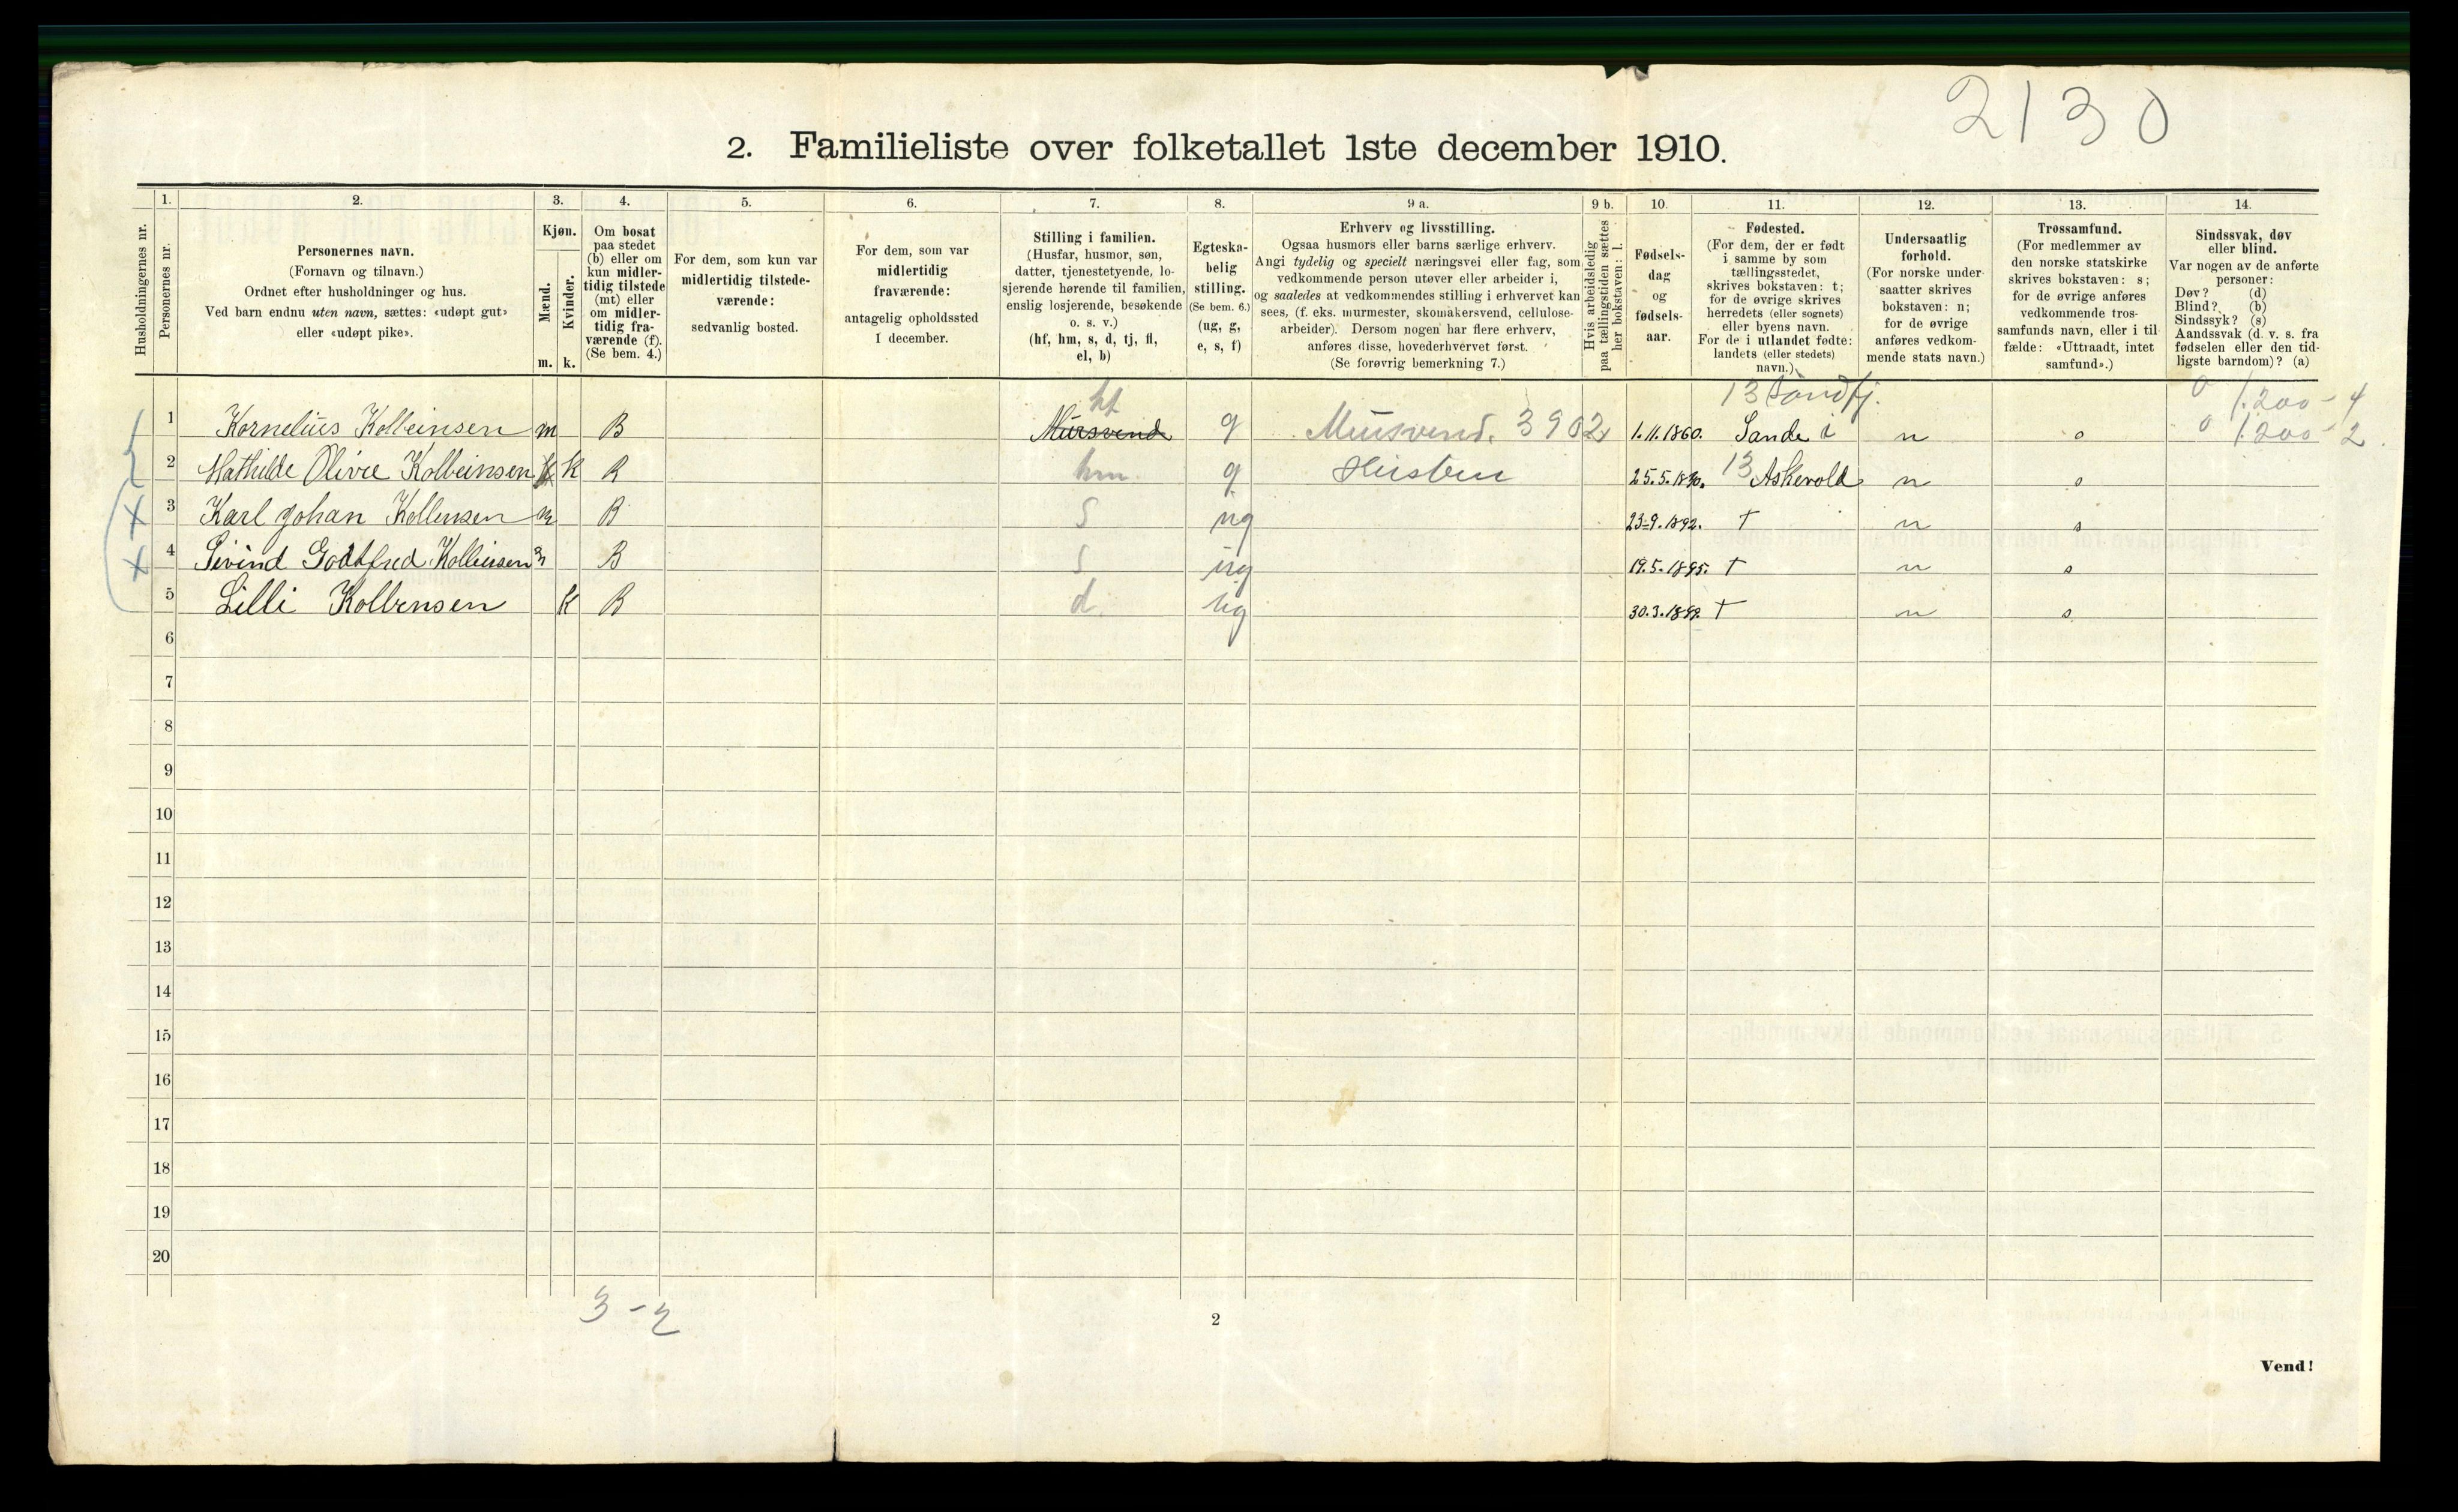 2130
2. Familieliste over folketallet 1ste december 1910.
Husholdningernes nr.
1.
Personernes nr.
2.
Personernes navn.
(Fornavn og tilnavn.)
Ordnet efter husholdninger og hus.
Ved barn endnu uten navn, sættes: «udøpt gut»
eller «udøpt pike».
3.
Kjøn.
Mænd.
Kvinder.
m. k.
4.
Om bosat
paa stedet
(b) eller om
kun midler-
tidig tilstede
(mt) eller
om midler-
tidig fra-
værende (f).
(Se bem. 4.)
5.
For dem, som kun var
midlertidig tilstede-
værende:
sedvanlig bosted.
6.
For dem, som var
midlertidig
fraværende:
antagelig opholdssted
1 december.
7.
Stilling i familien.
(Husfar, husmor, søn,
datter, tjenestetyende, lo-
sjerende hørende til familien,
enslig losjerende, besøkende
o. s. v.)
(hf, hm, s, d, tj, fl,
el, b)
8.
Egteska-
belig
stilling.
(Se bem. 6.)
(ug, g,
e, s, f)
9 a.
Erhverv og livsstilling.
Ogsaa husmors eller barns særlige erhverv.
Angi tydelig og specielt næringsvei eller fag, som
vedkommende person utøver eller arbeider i,
og saaledes at vedkommendes stilling i erhvervet kan
sees, (f. eks. murmester, skomakersvend, cellulose-
arbeider). Dersom nogen har flere erhverv,
anføres disse, hovederhvervet først.
(Se forøvrig bemerkning 7.)
9 b.
Hvis arbeidsledig
paa tællingstiden sættes
her bokstaven: l.
10.
Fødsels-
dag
og
fødsels-
aar.
11.
Fødested.
(For dem, der er født
i samme by som
tællingsstedet,
skrives bokstaven: t;
for de øvrige skrives
herredets (eller sognets)
eller byens navn.
For de i utlandet fødte:
landets (eller stedets)
navn.)
12.
Undersaatlig
forhold.
(For norske under-
saatter skrives
bokstaven: n;
for de øvrige
anføres vedkom-
mende stats navn.)
13.
Trossamfund.
(For medlemmer av
den norske statskirke
skrives bokstaven: s;
for de øvrige anføres
vedkommende tros-
samfunds navn, eller i til-
fælde: «Uttraadt, intet
samfund».)
14.
Sindssvak, døv
eller blind.
Var nogen av de anførte
personer:
Døv? (d)
Blind? (b)
Sindssyk? (s)
Aandssvak (d. v. s. fra
fødselen eller den tid-
ligste barndom)? (a)
hf 13 Søndfj. 0 1.200 - 4
1 Kornelius Kolbeinsen m B Mursvend g Mursvend. 3902 1.11.1860. Sande i n s 0 1.200 - 2.
2 Mathilde Olive Kolbeinsen k B hm g Husstell 25.5.18 13 Askevold n s
3 Karl Johan Kolbensen m B s ug 23-9.1892. t n s
4 Eivind Godtfred Kolbeinsen m B s ug 19.5.1895. t n s
5 Lilli Kolbensen k B d. ug 30.3.1899. t n s.
6
7
8
9
10
11
12
13
14
15
16
17
18
19
20
3 - 2
2
Vend!